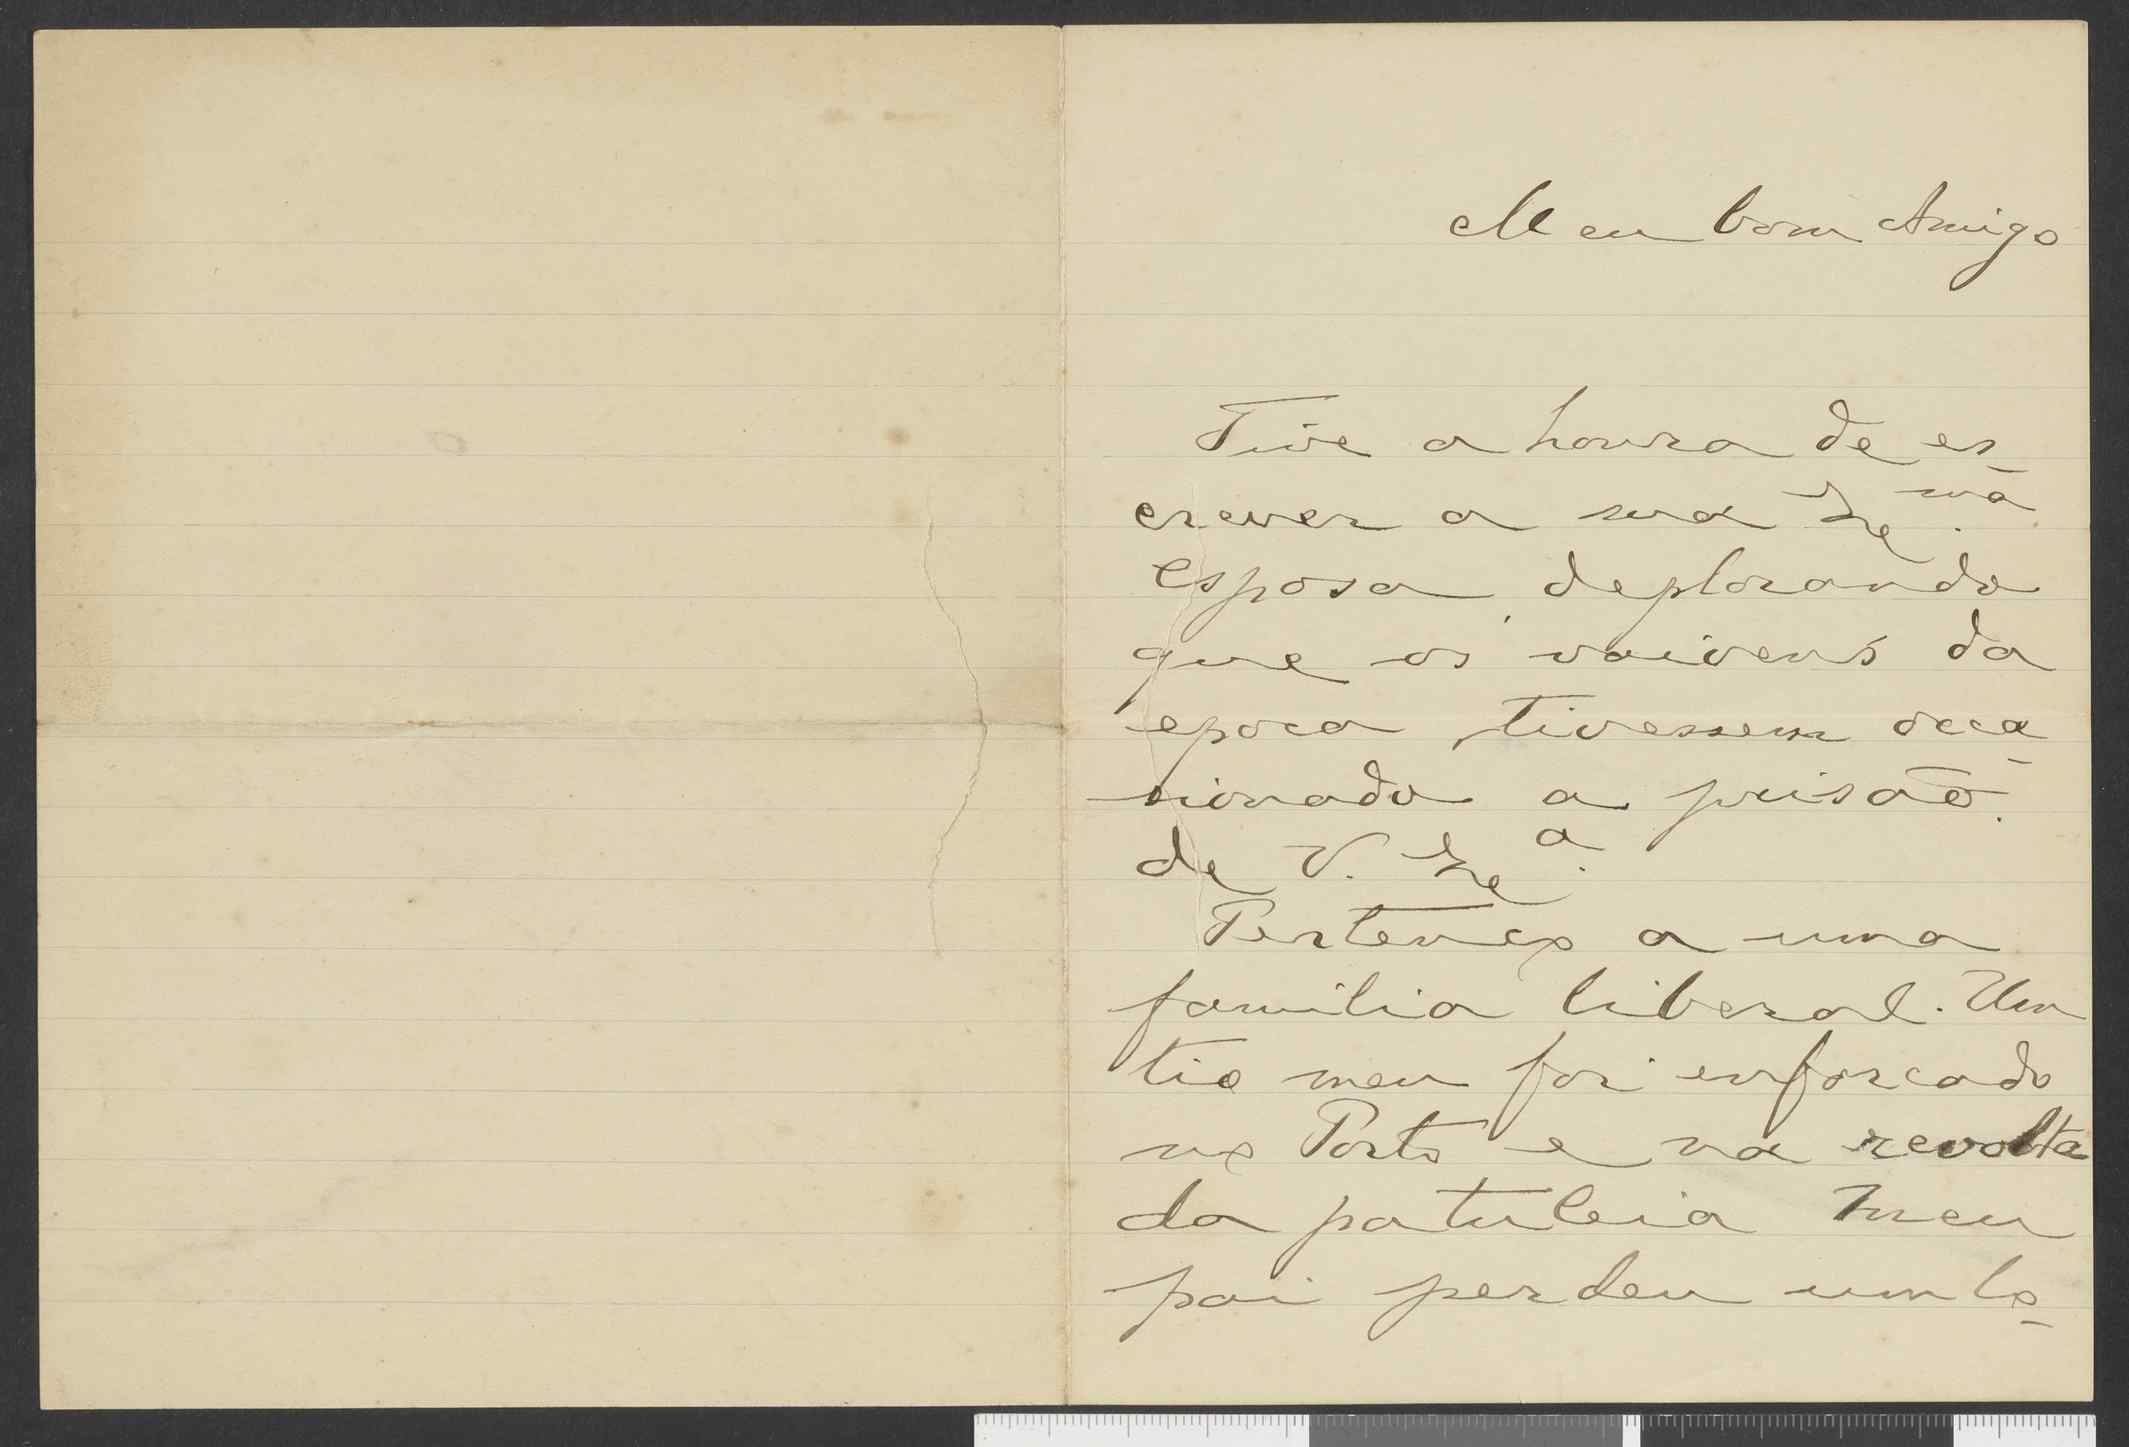 Meu bom Amigo
Tive a honra de es-
crever a sua Exma.
Esposa, deplorando
que os vaivens da
epoca, tivessem occa-
sionado a prisão
de V. Exa.
Pertenço a uma
familia liberal. Um
tio meu foi enforcado
no Porto e na revolta
da patuleia meu
pai perdeu um lo-